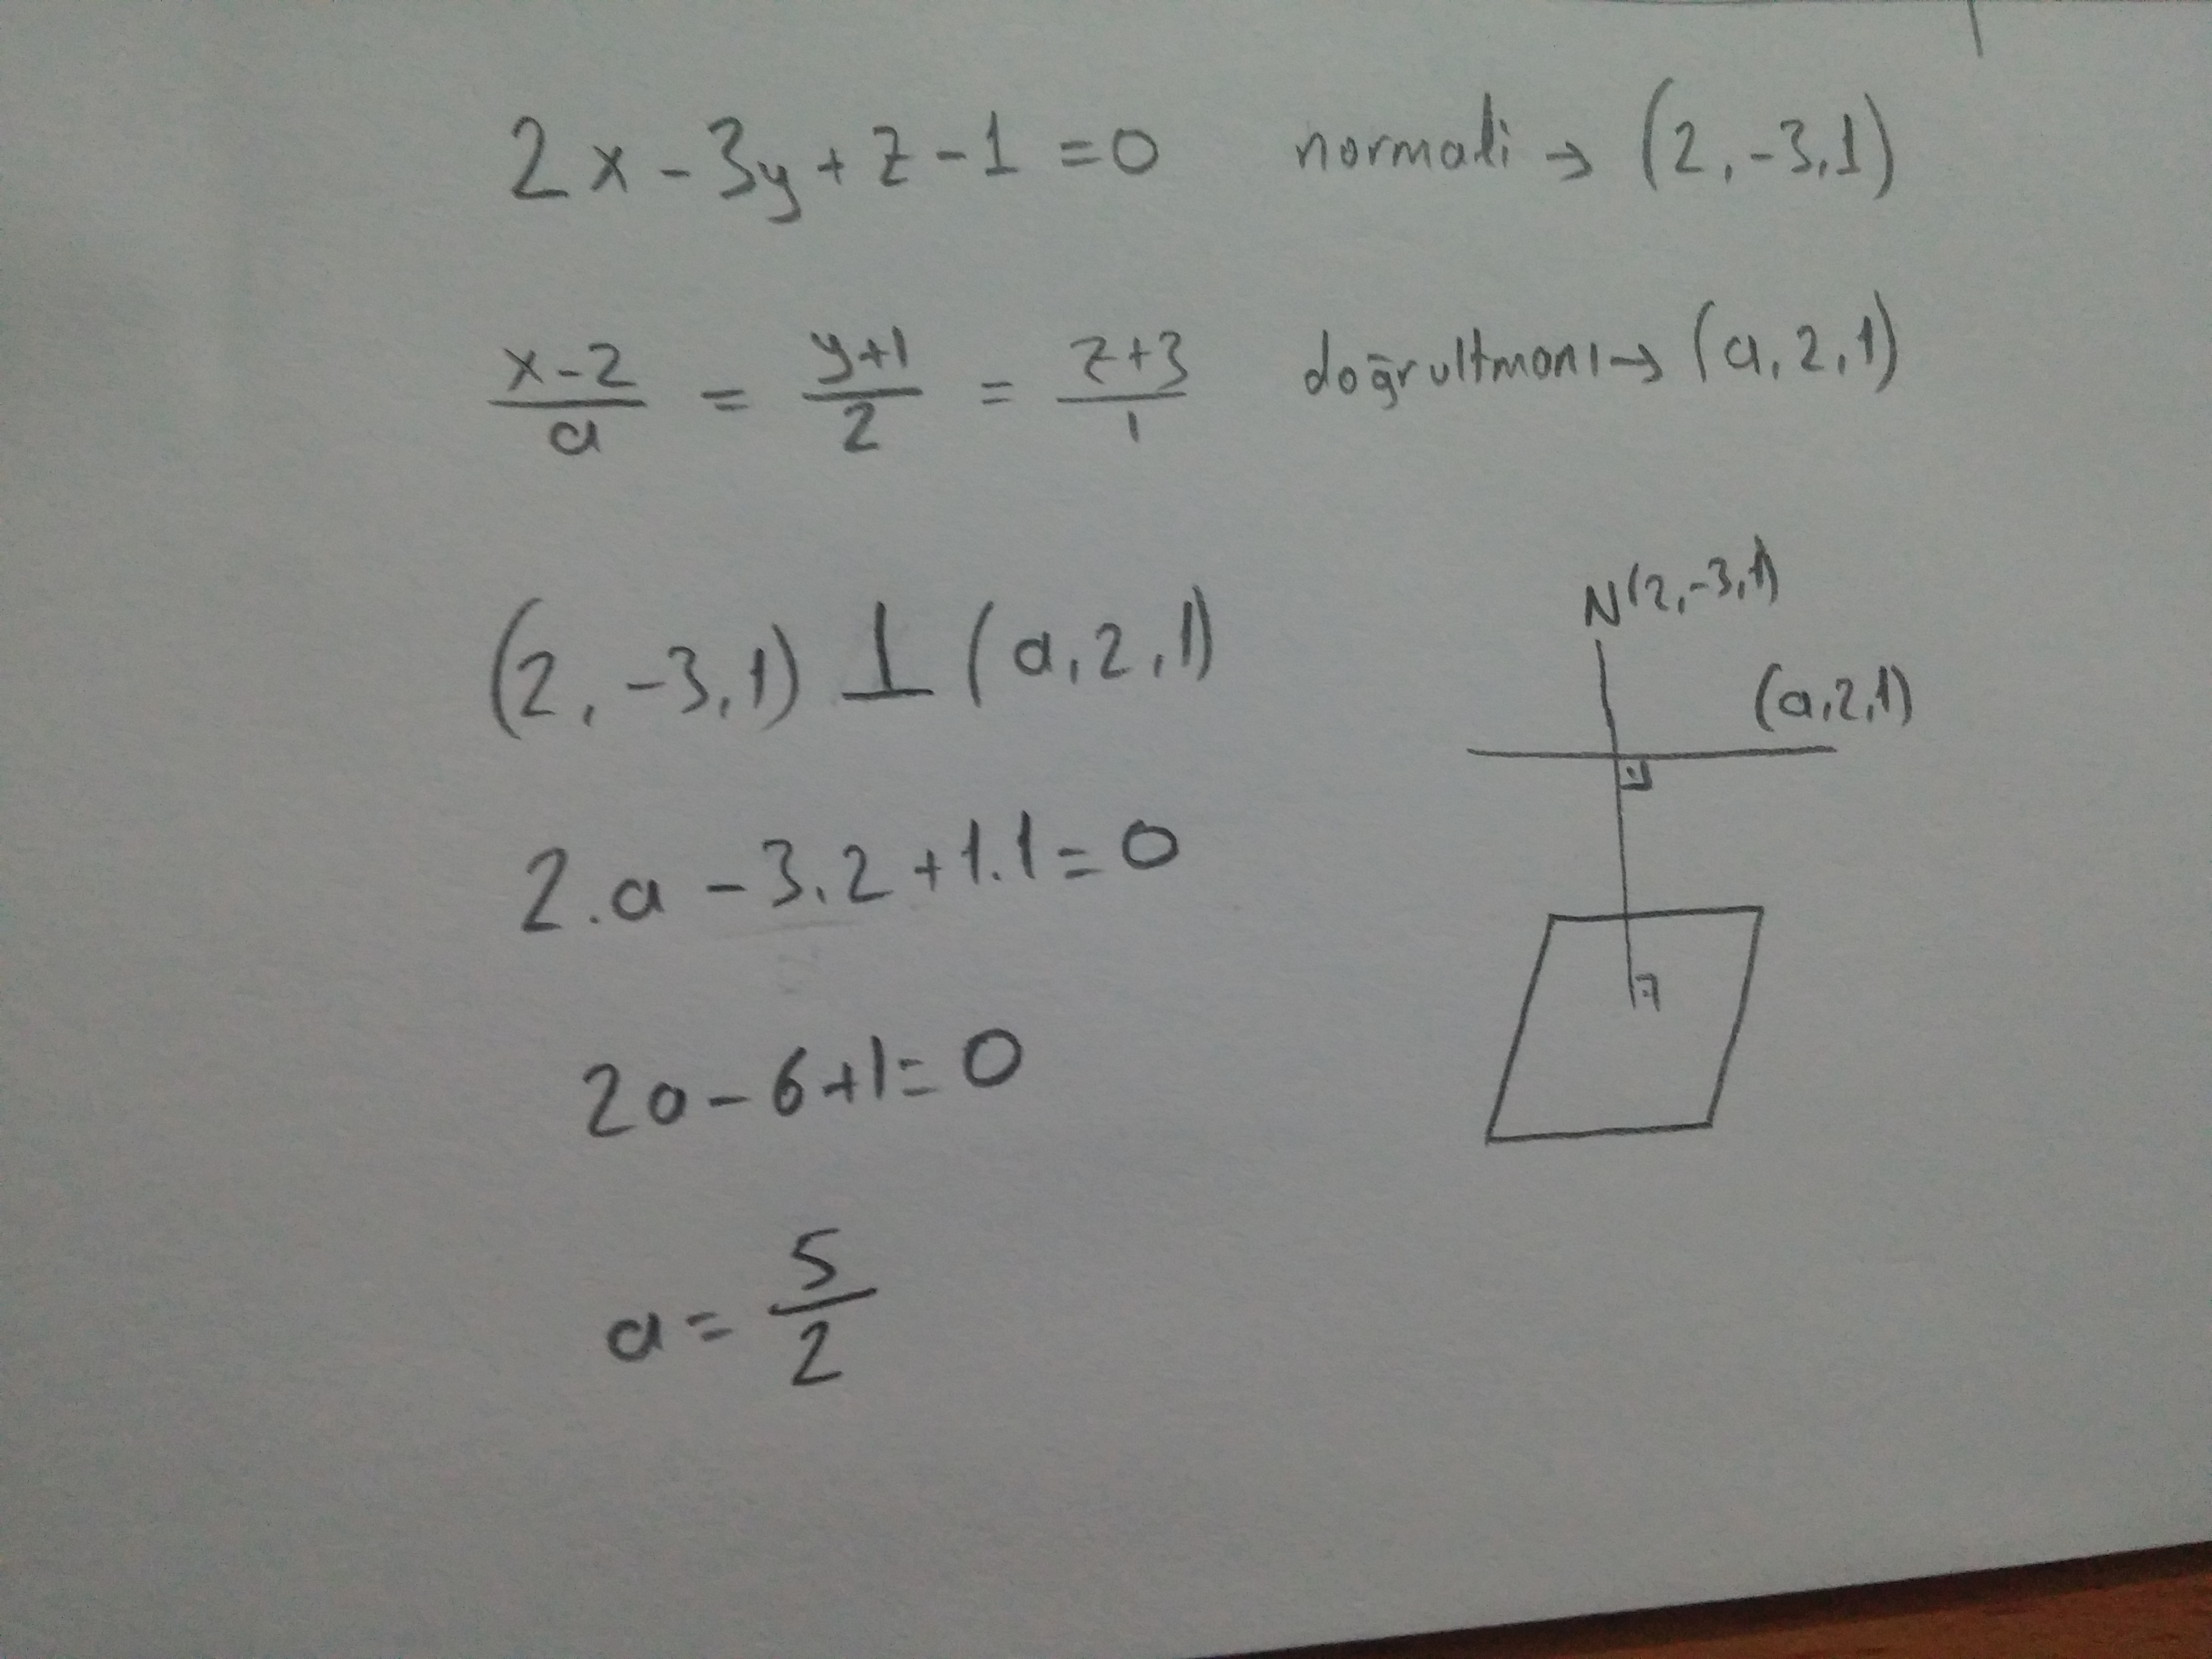 2x - 3y + z - 1 = 0 normali → (2, -3, 1)
(x-2)/a = (y+1)/2 = (z+3)/1 doğrultmanı → (a, 2, 1)
(2, -3, 1) ⊥ (a, 2, 1)
N(2, -3, 1)
(a, 2, 1)
2.a - 3.2 + 1.1 = 0
2a - 6 + 1 = 0
a = 5/2